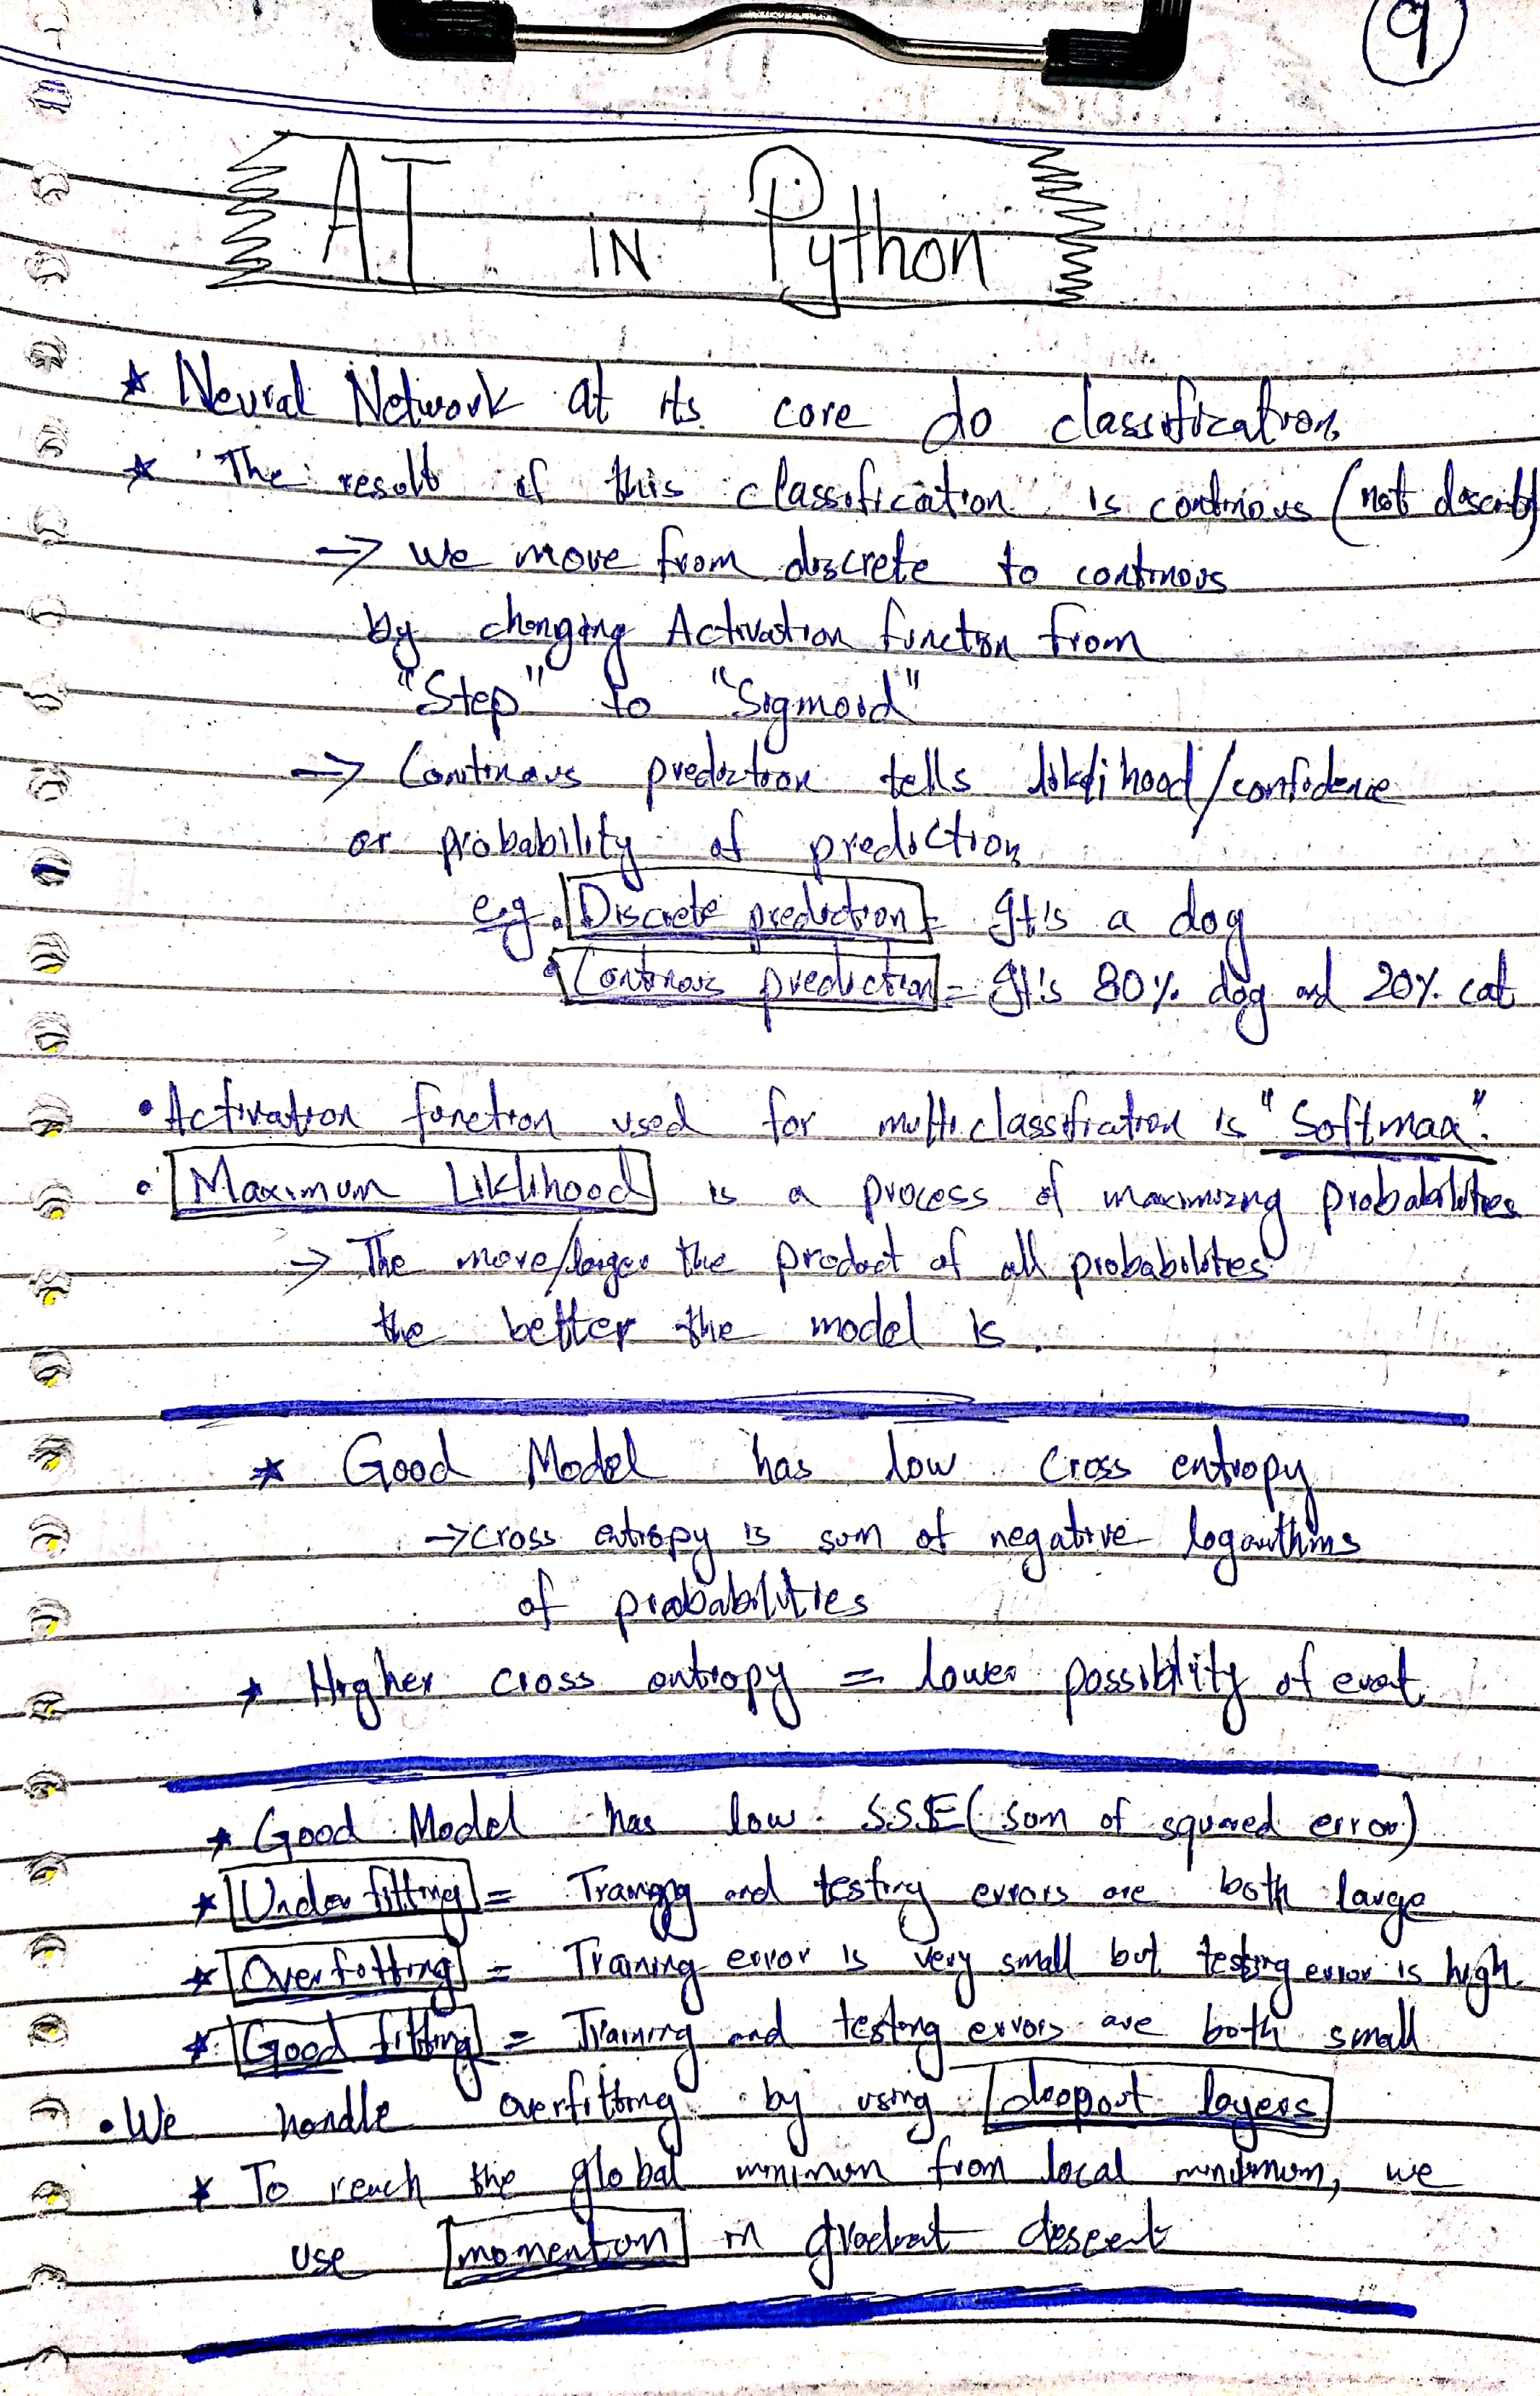 9
AI IN Python
★ Neural Network at its core do classification.
★ The result of this classification is continous (not discrete)
→ we move from discrete to continous
by changing Activation function from
"Step" to "Sigmoid"
→ Continous prediction tells likelihood/confidence
or probability of prediction
e.g. • Discrete prediction = It's a dog
• Continous prediction = It's 80% dog and 20% cat
• Activation function used for multi.classification is "Softmax".
• Maximum Liklihood is a process of maximizing probabilities
→ The more/larger the product of all probabilities
the better the model is.
★ Good Model has low cross entropy
→ cross entropy is sum of negative logarithms
of probabilities
★ Higher cross entropy = lower possiblity of event.
★ Good Model has low S.S.E (sum of squared error)
★ Under fitting = Traingng and testing errors are both large
★ Overfitting = Training error is very small but testing error is high
★ Good fitting = Training and testing errors are both small
• We handle overfitting by using dropout layers
★ To reach the global minimum from local minimum, we
use momentum in gradient descent